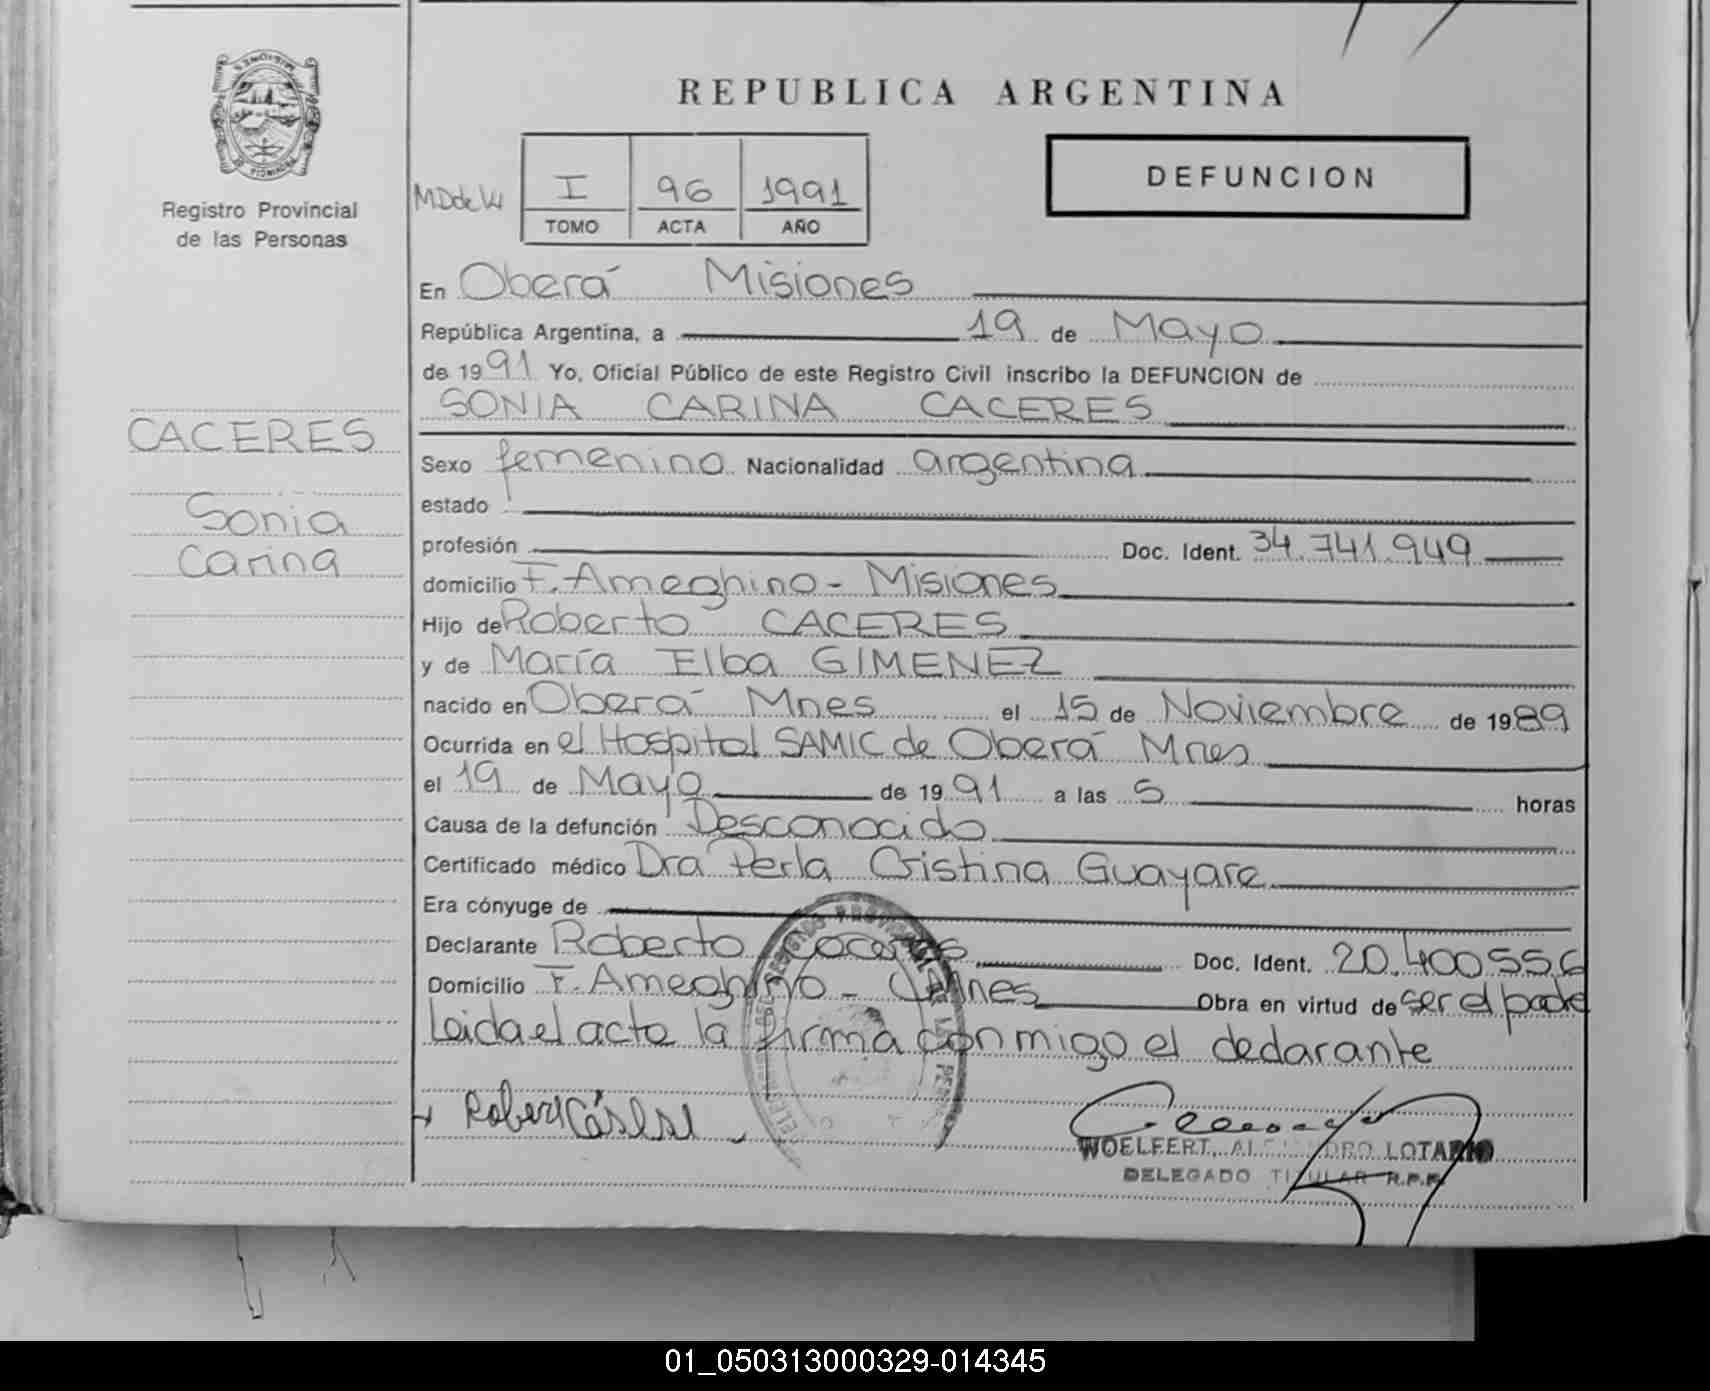 REPUBLICA ARGENTINA
DEFUNCION
Registro Provincial
de las Personas
I 96 1991
TOMO ACTA AÑO
En Oberá Misiones
República Argentina, a 19 de Mayo
de 1991 Yo, Oficial Público de este Registro Civil inscribo la DEFUNCION de
SONIA CARINA CACERES
CACERES
Sonia
Carina
Sexo femenino Nacionalidad argentina
estado
profesión Doc. Ident. 34.741.949
domicilio F. Ameghino - Misiones
Hijo de Roberto CACERES
y de María Elba GIMENEZ
nacido en Oberá Mnes el 15 de Noviembre de 1989
Ocurrida en el Hospital SAMIC de Oberá Mnes
el 19 de Mayo de 1991 a las 5 horas
Causa de la defunción Desconocido
Certificado médico Dra Perla Cristina Guayare
Era cónyuge de
Declarante Roberto Caceres Doc. Ident. 20.400556
Domicilio F. Ameghino - Mnes Obra en virtud de ser el padre
Leida el acta la firma conmigo el declarante
WOELFERT, ALEJANDRO LOTARIO
DELEGADO TITULAR R.P.P.
01_050313000329-014345